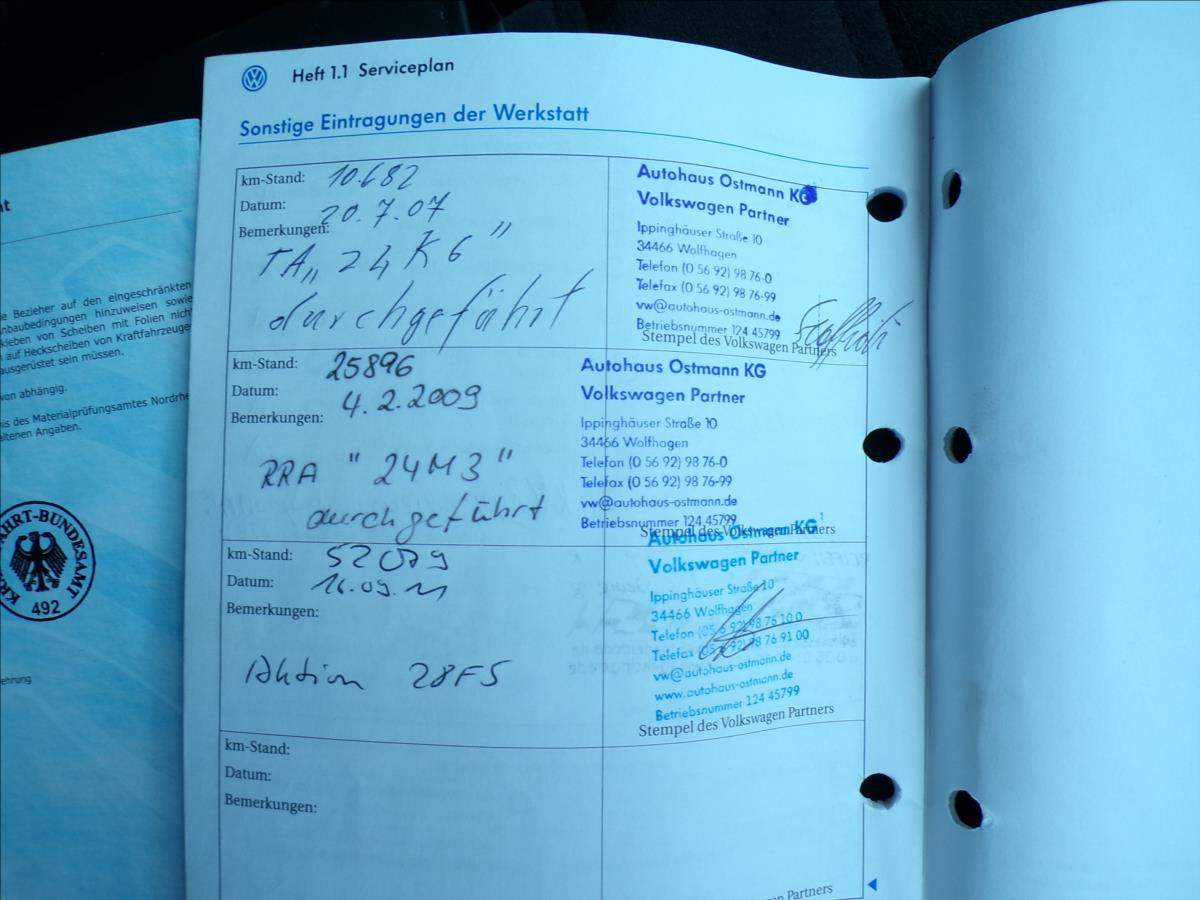 Heft 1.1 Serviceplan
Sonstige Eintragungen der Werkstatt
km-Stand: 10.682
Datum: 20.7.07
Bemerkungen:
TA „24K6"
durchgeführt
Autohaus Ostmann KG
Volkswagen Partner
Ippinghäuser Straße 10
34466 Wolfhagen
Telefon (0 56 92) 98 76-0
Telefax (0 56 92) 98 76-99
vw@autohaus-ostmann.de
Betriebsnummer 124 45799
Stempel des Volkswagen Partners
km-Stand: 25896
Datum: 4.2.2009
Bemerkungen:
RRA "24M3"
durchgeführt
Autohaus Ostmann KG
Volkswagen Partner
Ippinghäuser Straße 10
34466 Wolfhagen
Telefon (0 56 92) 98 76-0
Telefax (0 56 92) 98 76-99
vw@autohaus-ostmann.de
Betriebsnummer 124 45799
Stempel des Volkswagen Partners
km-Stand: 52079
Datum: 16.09.11
Bemerkungen:
Aktion 28F5
Autohaus Ostmann KG
Volkswagen Partner
Ippinghäuser Straße 10
34466 Wolfhagen
Telefon (05 6 92) 98 76 10 0
Telefax (05 6 92) 98 76 91 00
vw@autohaus-ostmann.de
www.autohaus-ostmann.de
Betriebsnummer 124 45799
Stempel des Volkswagen Partners
km-Stand:
Datum:
Bemerkungen:
Partners
e Bezieher auf den eingeschränkten
nbaubedingungen hinzuweisen sowie
kleben von Scheiben mit Folien nich
auf Heckscheiben von Kraftfahrzeuge
ausgerüstet sein müssen.
von abhängig.
is des Materialprüfungsamtes Nordrhe
ltenen Angaben.
AHRT-BUNDESAMT
492
ehrung